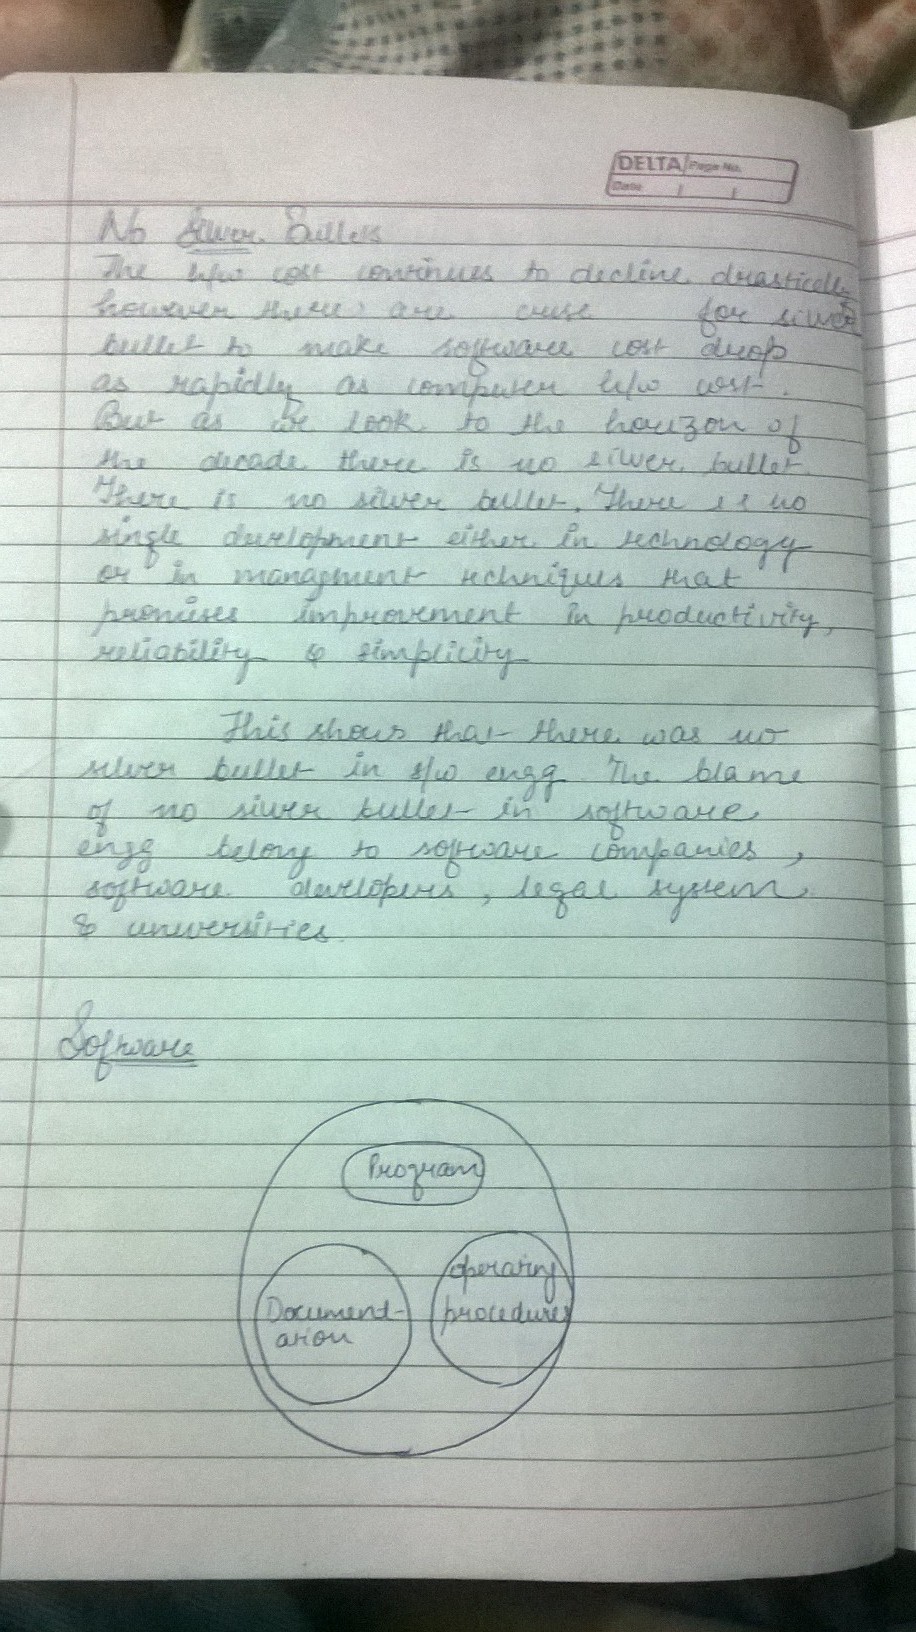 DELTA Page No.
Date / /
No Silver Bullets
The h/w cost continues to decline drastically
however there are cries for silver
bullet to make software cost drop
as rapidly as computer h/w cost.
But as we look to the horizon of
the decade there is no silver bullet.
There is no silver bullet. There is no
single development either in technology
or in managment techniques that
promises improvement in productivity,
reliability & simplicity
This shows that there was no
silver bullet in s/w engg. The blame
of no silver bullet in software
engg belong to software companies,
software developers, legal system
& universities.
Software
Program
Operating
procedures
Document-
ation